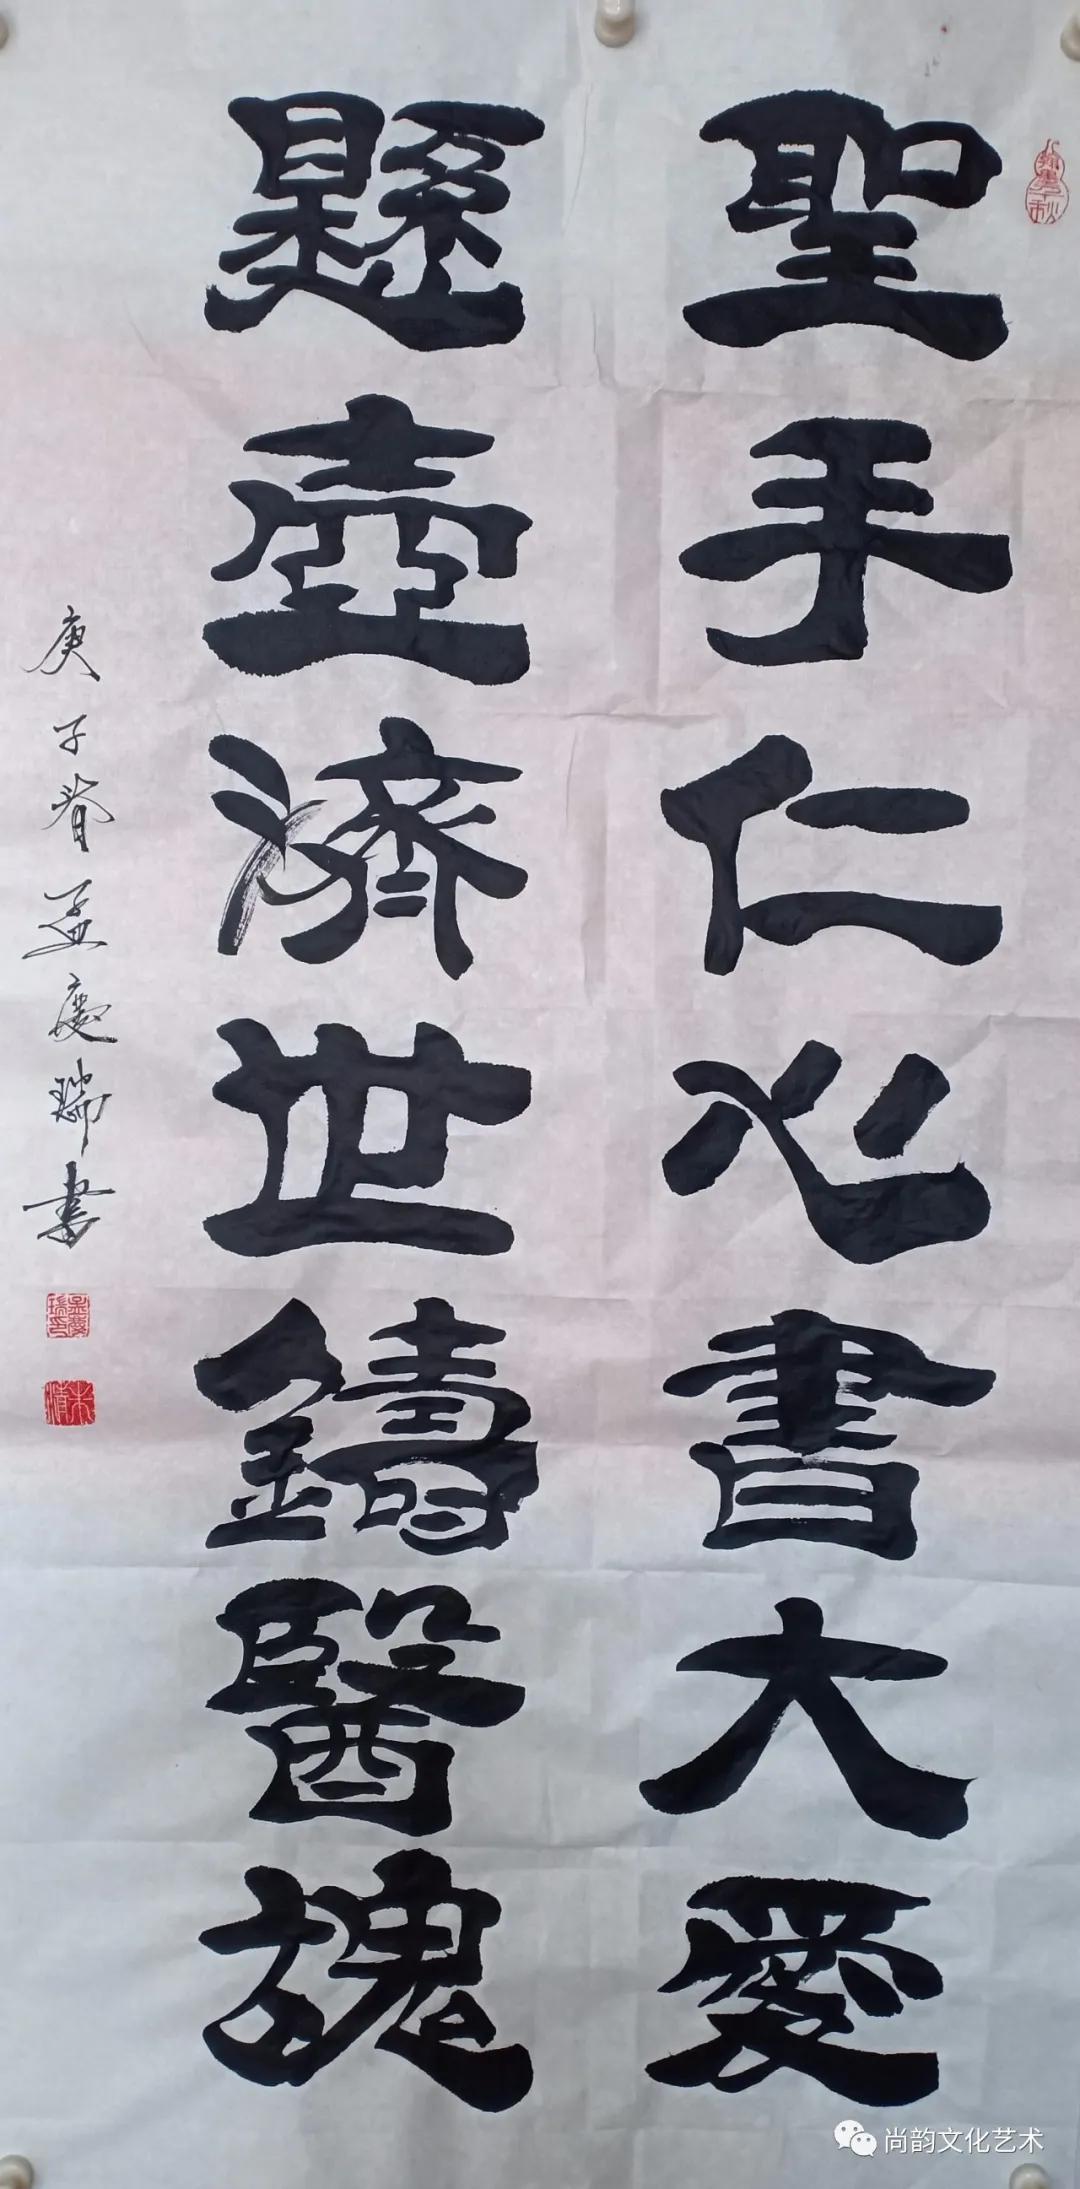 聖手仁心書大愛
懸壺濟世鑄醫魂
庚子春孟慶瑞書
孟慶瑞印
尚韵文化艺术